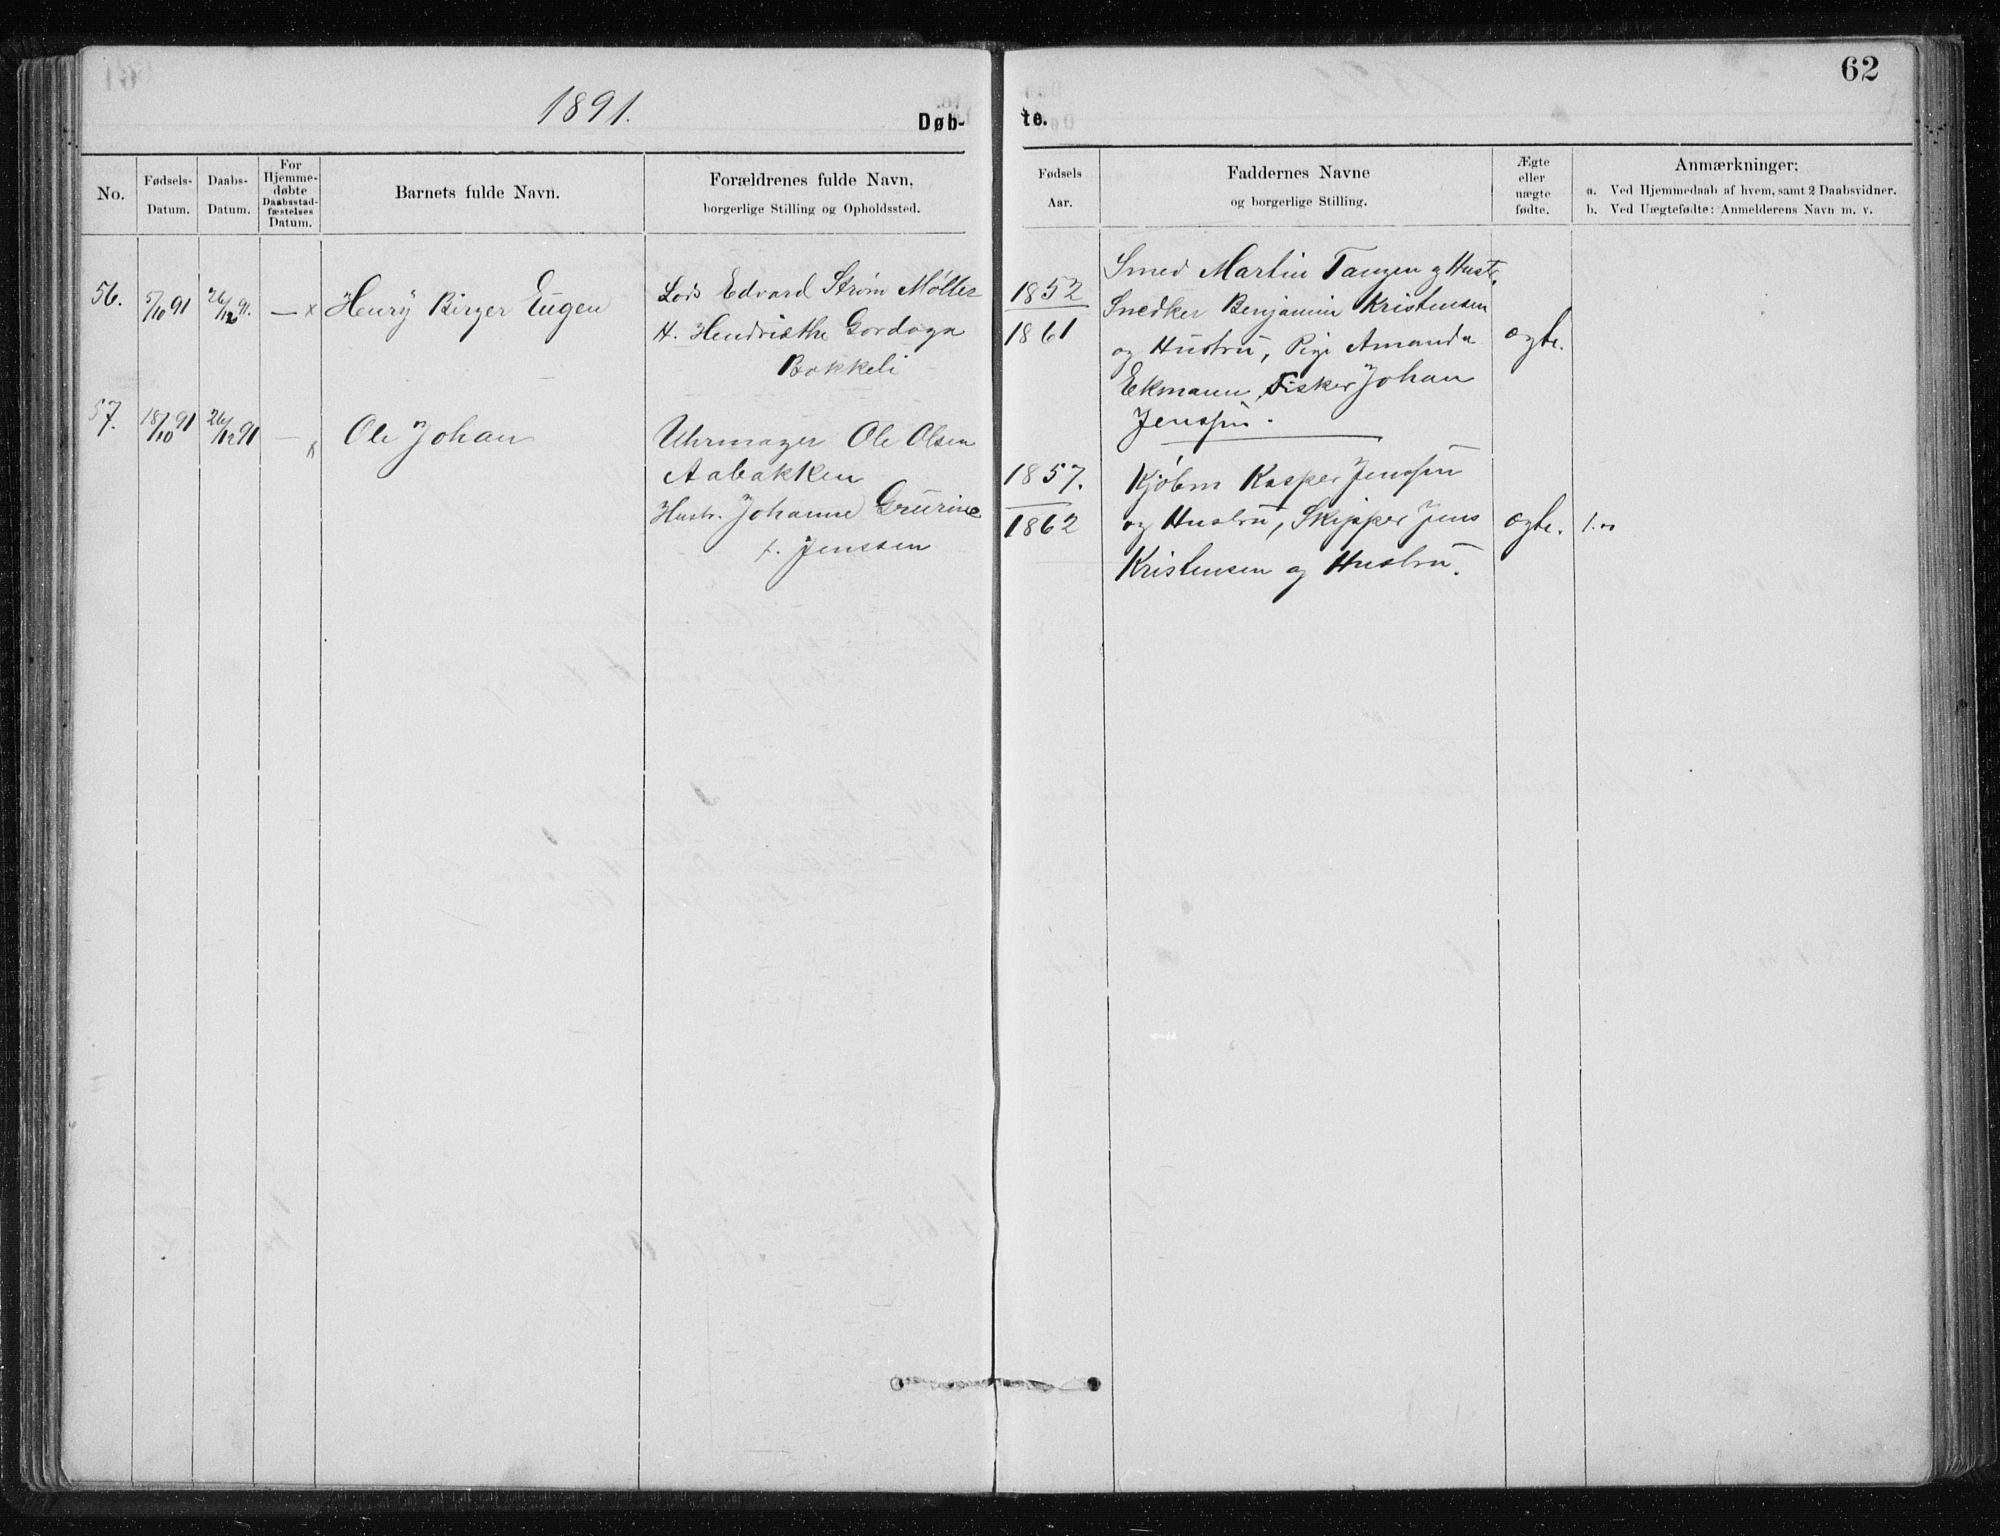 62
1891.
Døb-
te.
No.
Fødsels-
Datum.
Daabs-
Datum.
For
Hjemme-
døbte
Daabsstad-
fæstelses
Datum.
Barnets fulde Navn.
Forældrenes fulde Navn,
borgerlige Stilling og Opholdssted.
Fødsels
Aar.
Faddernes Navne
og borgerlige Stilling.
Ægte
eller
uægte
fødte.
Anmærkninger;
a. Ved Hjemmedaab af hvem, samt 2 Daabsvidner.
b. Ved Uægtefødte: Anmelderens Navn m. v.
56.
5/10 91
26/12 91.
—
x
Henry Birger Eugen
Lods Edvard Strøm Møller
H. Hendriethe Gordaga
Bakkeli
1852
1861
Smed Martin Tangen og Hustr.
Snedker Benjamin Kristensen
og Hustru, Pige Amanda
Ekmann, Fisker Johan
Jenssen.
ægte.
57.
18/10 91
26/12 91
—
Ole Johan
Uhrmager Ole Olsen
Aabakken
Hustr. Johanne Grurine
f. Jenssen
1857.
1862
Kjøbm Kasper Jenssen
og Hustru, Skipper Jens
Kristensen og Hustru.
ægte.